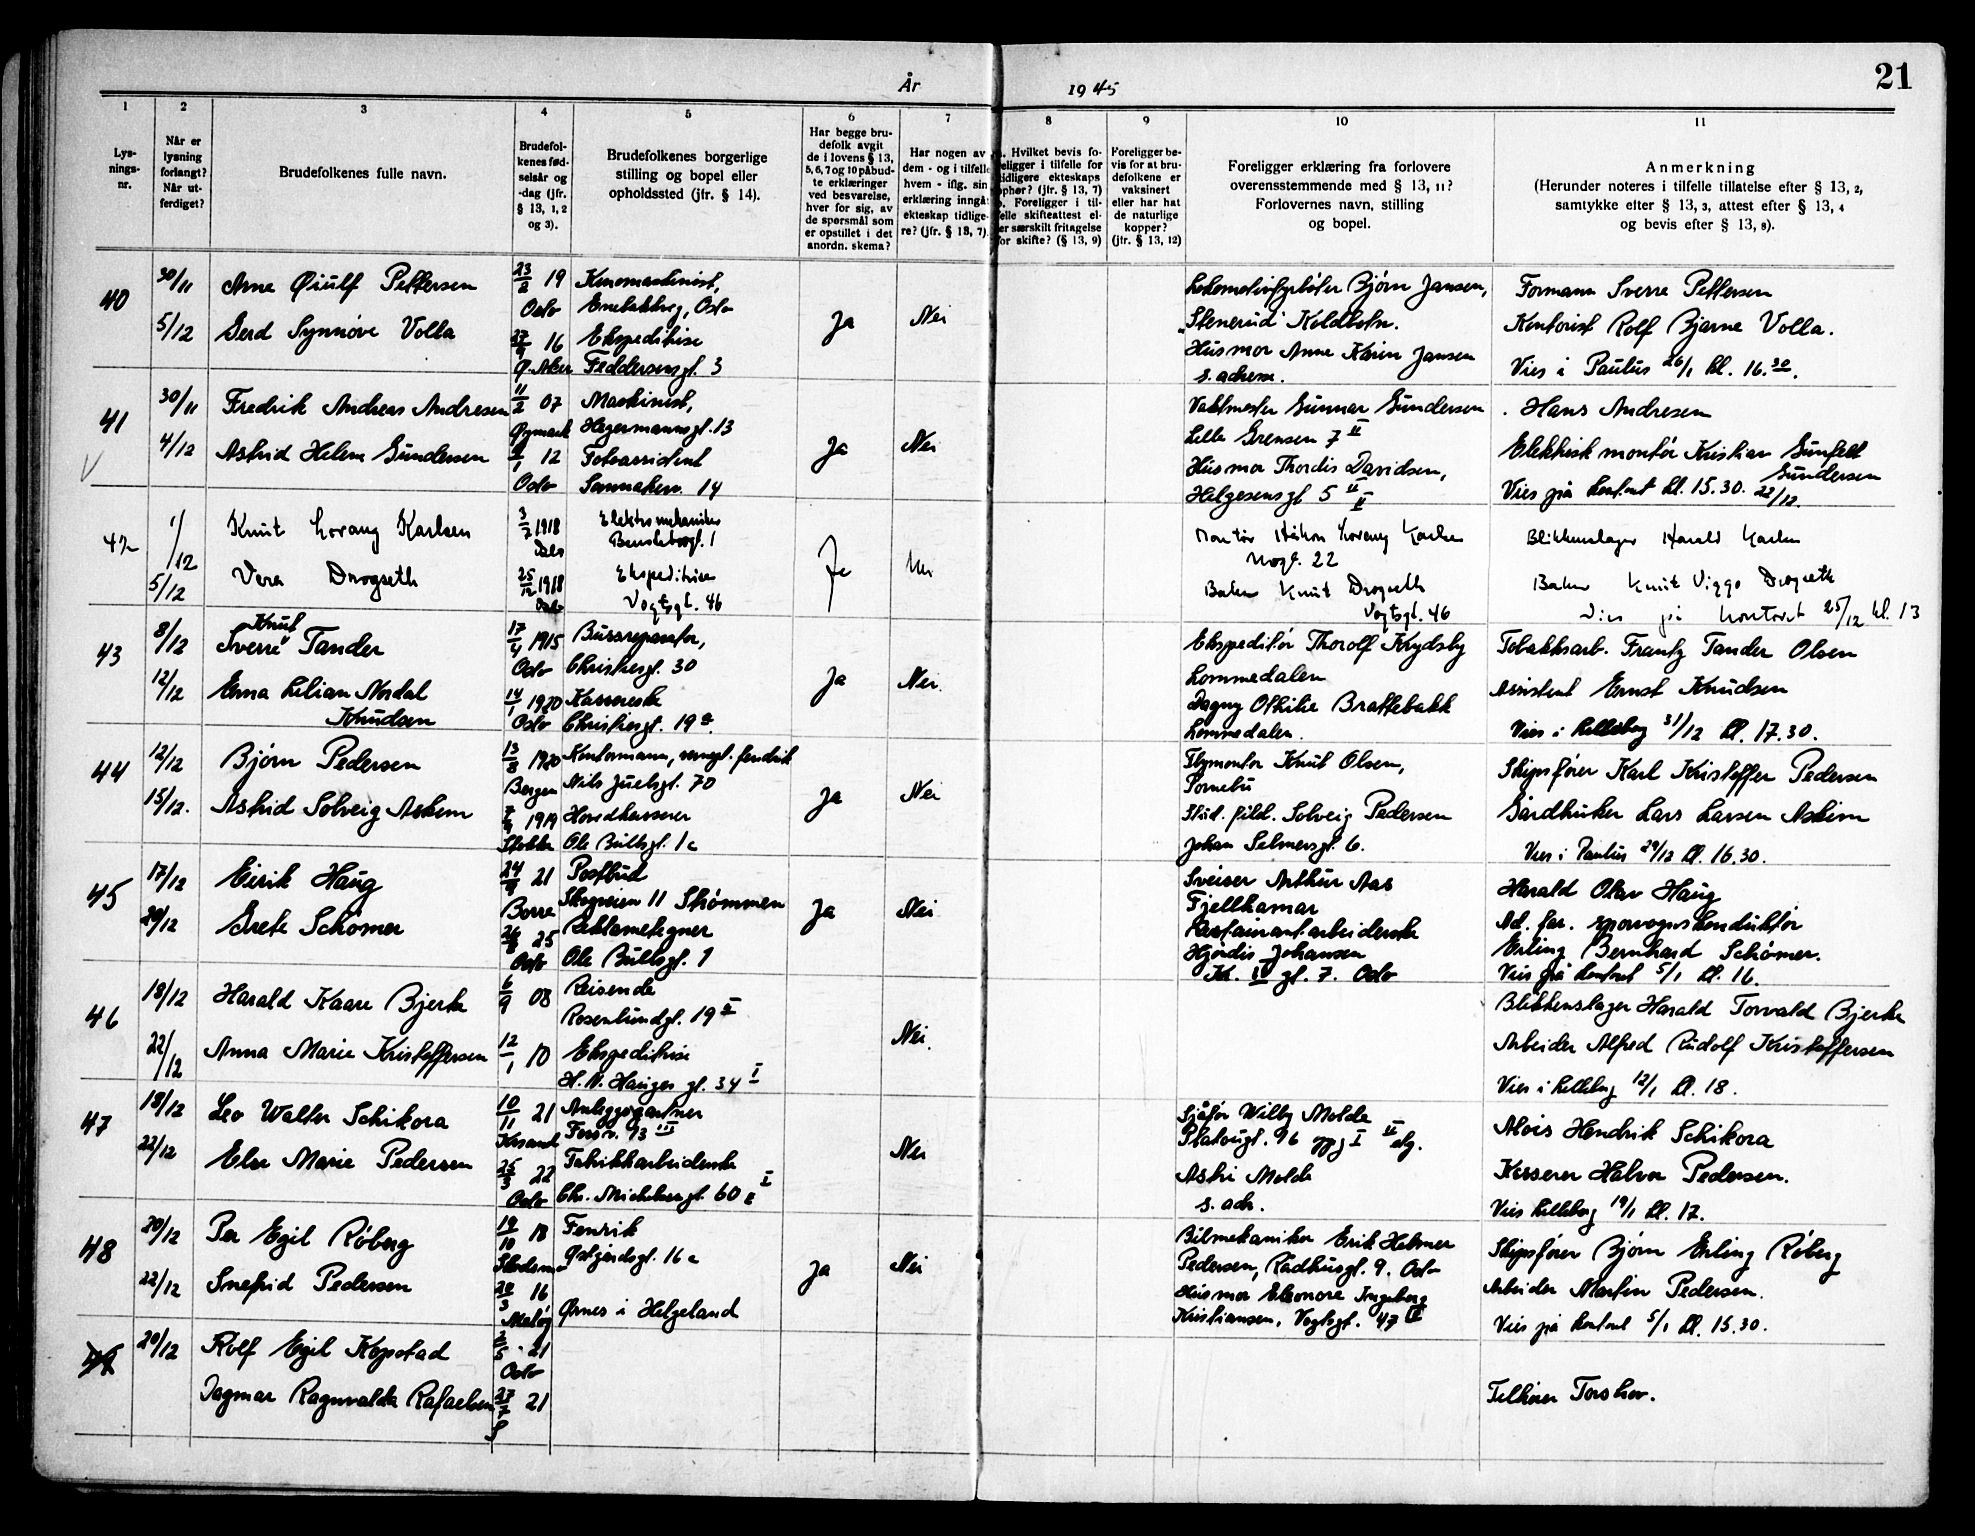 21
År 1945
1 2 3 4 5 6 7 8 9 10 11
Lys-
nings-
nr.
Når er
lysning
forlangt?
Når ut-
ferdiget?
Brudefolkenes fulle navn.
Brudefol-
kenes fød-
selsår og
-dag (jfr.
§ 13, 1, 2
og 3).
Brudefolkenes borgerlige
stilling og bopel eller
opholdssted (jfr. § 14).
Har begge bru-
defolk avgit
de i lovens § 13,
5, 6, 7 og 10 påbud-
te erklæringer
ved besvarelse,
hver for sig, av
de spørsmål som
er opstillet i det
anordn. skema?
Har nogen av
dem - og i tilfelle
hvem - iflg. sin
erklæring inngå
ekteskap tidlige-
re? (jfr. § 13, 7).
Hvilket bevis fo-
religger i tilfelle for
tidligere ekteskaps
ophør? (jfr. § 13, 7)
Foreligger i til-
felle skifteattest el-
er særskilt fritagelse
for skifte? (§ 13, 9)
Foreligger be-
vis for at bru-
defolkene er
vaksinert
eller har hat
de naturlige
kopper?
(jfr. § 13, 12)
Foreligger erklæring fra forlovere
overensstemmende med § 13, 11?
Forlovernes navn, stilling
og bopel.
Anmerkning
(Herunder noteres i tilfelle tillatelse efter § 13, 2,
samtykke efter § 13, 3, attest efter § 13, 4
og bevis efter § 13, 8).
40
30/11
5/12
Arne Øiulf Pettersen
Gerd Synnøve Volla
23/2 19
Oslo
27/9 16
Ø. Aker
Kinomaskinist,
Enebakkvg, Oslo
Ekspeditrise
Feddersensgt. 3
Ja
Nei
Lokomotivfyrbøter Bjørn Jansen,
"Stenerud" Kolbotn.
Husmor Anne Karin Jansen
s. adresse.
Formann Sverre Pettersen
Kontorist Rolf Bjarne Volla.
Vies i Paulus 26/1 kl. 16.30.
41
30/11
4/12
Fredrik Andreas Andresen
Astrid Helene Gundersen
11/2 07
Øymark
/1 12
Oslo
Maskinist,
Hegermannsgt. 13
Fotoassistent
Sannakerv. 14
Ja
Nei
Vaktmester Gunnar Gundersen
Lille Grensen 7 II
Husmor Thordis Davidsen,
Helgesensgt 5 II
Hans Andresen
Elektrisk montør Kristian Gunfelt
Gundersen
Vies på kontoret kl. 15.30. 22/12.
42
1/12
5/12
Knut Lorang Karlsen
Vera Drogseth
3/7 1918
Oslo
25/12 1918
Oslo
Elektromekaniker
Bentsebrogt. 1
Ekspeditrise
Vogtsgt. 46
Ja
Nei
Montør Håkon Lorang Karlsen
22
Baker Knut Drogseth
Vogtsgt. 46
Blikkenslager Harald Karlsen
Baker Knut Viggo Drogseth
Vies på kontoret 25/12 kl. 13
43
8/12
12/12
Knut
Sverre Tander
Erna Lilian Nordal
Knudsen
17/4 1915
Oslo
14/1 1920
Oslo
Bussreparatør,
Christiesgt. 30
Kassererske
Christiesgt. 19
Ja
Nei.
Ekspeditør Thorolf Krydsby
Lommedalen
Dagny Othilie Brattebakk
Lommedalen.
Tobakksarb. Frantz Tander Olsen
Assistent Ernst Knudsen
Vies i Lilleborg 31/12 kl. 17.30.
44
12/12
15/12.
Bjørn Pedersen
Astrid Solveig Askim
13/8 1920
Bergen
7/9 1919
Kontormann, vernepl. fendrik
Nils Juelsgt. 70
Hovedkasserer
Ole Bullsgt. 1c
Ja
Nei
Flymontør Knut Olsen,
Fornebu
Stud. fild. Solveig Pedersen
Johan Selmersgt. 6.
Skipsfører Karl Kristoffer Pedersen
Gårdbruker Lars Larsen Askim
Vies i Paulus 29/12 kl. 16.30.
45
17/12
20/12
Eirik Haug
Grete Schømer
24/9 21
Borre
26/8 25
Oslo
Postbud
Skogveien 11 Strømmen
Reklametegner
Ole Bullsgt. 1
Ja
Nei
Sveiser Arthur Aas
Fjellhamar
Restaurantarbeiderske
Hjørdis Johansen
Kr. IV gt. 7. Oslo
Harald Olav Haug
Ad. far. sporvognskonduktør
Erling Bernhard Schømer.
Vies på kontoret 5/1 kl. 16.
46
19/12
22/12
Harald Kaare Bjerke
Anna Marie Kristoffersen
6/9 08
12/1 10
Reisende
Rosenlundgt. 19 II
Ekspeditrise
H. N. Hauges gt. 34 I
Nei.
Blikkenslager Harald Torvald Bjerke
Arbeider Alfred Rudolf Kristoffersen
Vies i Lilleborg 12/1 kl. 18.
47
18/12
22/12
Leo Walter Schikora
Else Marie Pedersen
10/11 21
Krsand
25/3 22
Oslo
Anleggsgartner
Fossv. 13 III
Fabrikkarbeiderske
Chr. Michelsensgt. 60 I
Nei
Sjåfør Willy Molde
Platougt. 96 oppg I II etg.
Astri Molde
s. adr.
Alois Hendrik Schikora
Kasserer Halvor Pedersen.
Vies Lilleborg 19/1 kl. 17.
48
20/12
22/12
Per Egil Røberg
Snefrid Pedersen
19/10 18
20/3 16
Meløy
Fenrik
Østgårdsgt. 16c
Ørnes i Helgeland
Ja
Nei
Bilmekaniker Erik Helmer
Pedersen, Rådhusgt. 9. Oslo
Husmor Eleonore Ingeborg
Kristiansen, Vogtsgt. 47 IV
Skipsfører Bjørn Erling Røberg
Arbeider Martin Pedersen.
Vies på kontoret 5/1 kl. 15.30.
49
20/12
Rolf Egil Kopstad
Dagmar Ragnvalda Rafaelsen
2/5 21
Oslo
27/7 21
Tilhører Torshov.